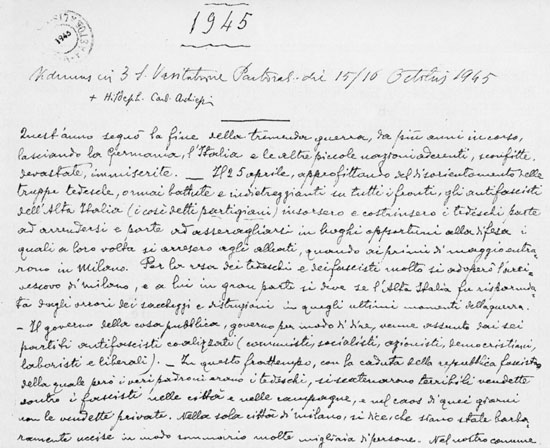 1945
1945
Vidimus in 3 S. Visitatione Pastorali die 15/16 Octobris 1945
+ Hildeph. Card. Archiep.
Quest'anno segnò la fine della tremenda guerra, da più anni in corso,
lasciando la Germania, l'Italia e le altre piccole nazioni aderenti, sconfitte,
devastate, immiserite. — Il 25 aprile, approfittando del disorientamento delle
truppe tedesche, ormai battute e indietreggianti su tutti i fronti, gli antifascisti
dell'Alta Italia (i così detti partigiani) insorsero e costrinsero i tedeschi parte
ad arrendersi e parte ad asserragliarsi in luoghi opportuni alla difesa i
quali a loro volta si arresero agli alleati, quando ai primi di maggio entra-
rono in Milano. Per la resa dei tedeschi e dei fascisti molto si adoperò l'arci-
vescovo di Milano, e a lui in gran parte si deve se l'Alta Italia fu risparmia-
ta dagli orrori dei saccheggi e distruzioni in quegli ultimi momenti della guerra.
— Il governo della cosa pubblica, governo per modo di dire, venne assunto dai sei
partiti antifascisti coalizzati (comunisti, socialisti, azionisti, democristiani,
laboristi e liberali). — In questo frattempo, con la caduta della repubblica fascista
della quale però i veri padroni erano i tedeschi, si scatenarono terribili vendette
contro i fascisti nelle città e nelle campagne, e nel caos di quei giorni
non le vendette private. Nella sola città di Milano, si dice, che siano state barba-
ramente uccise in modo sommario molte migliaia di persone. Nel nostro comune